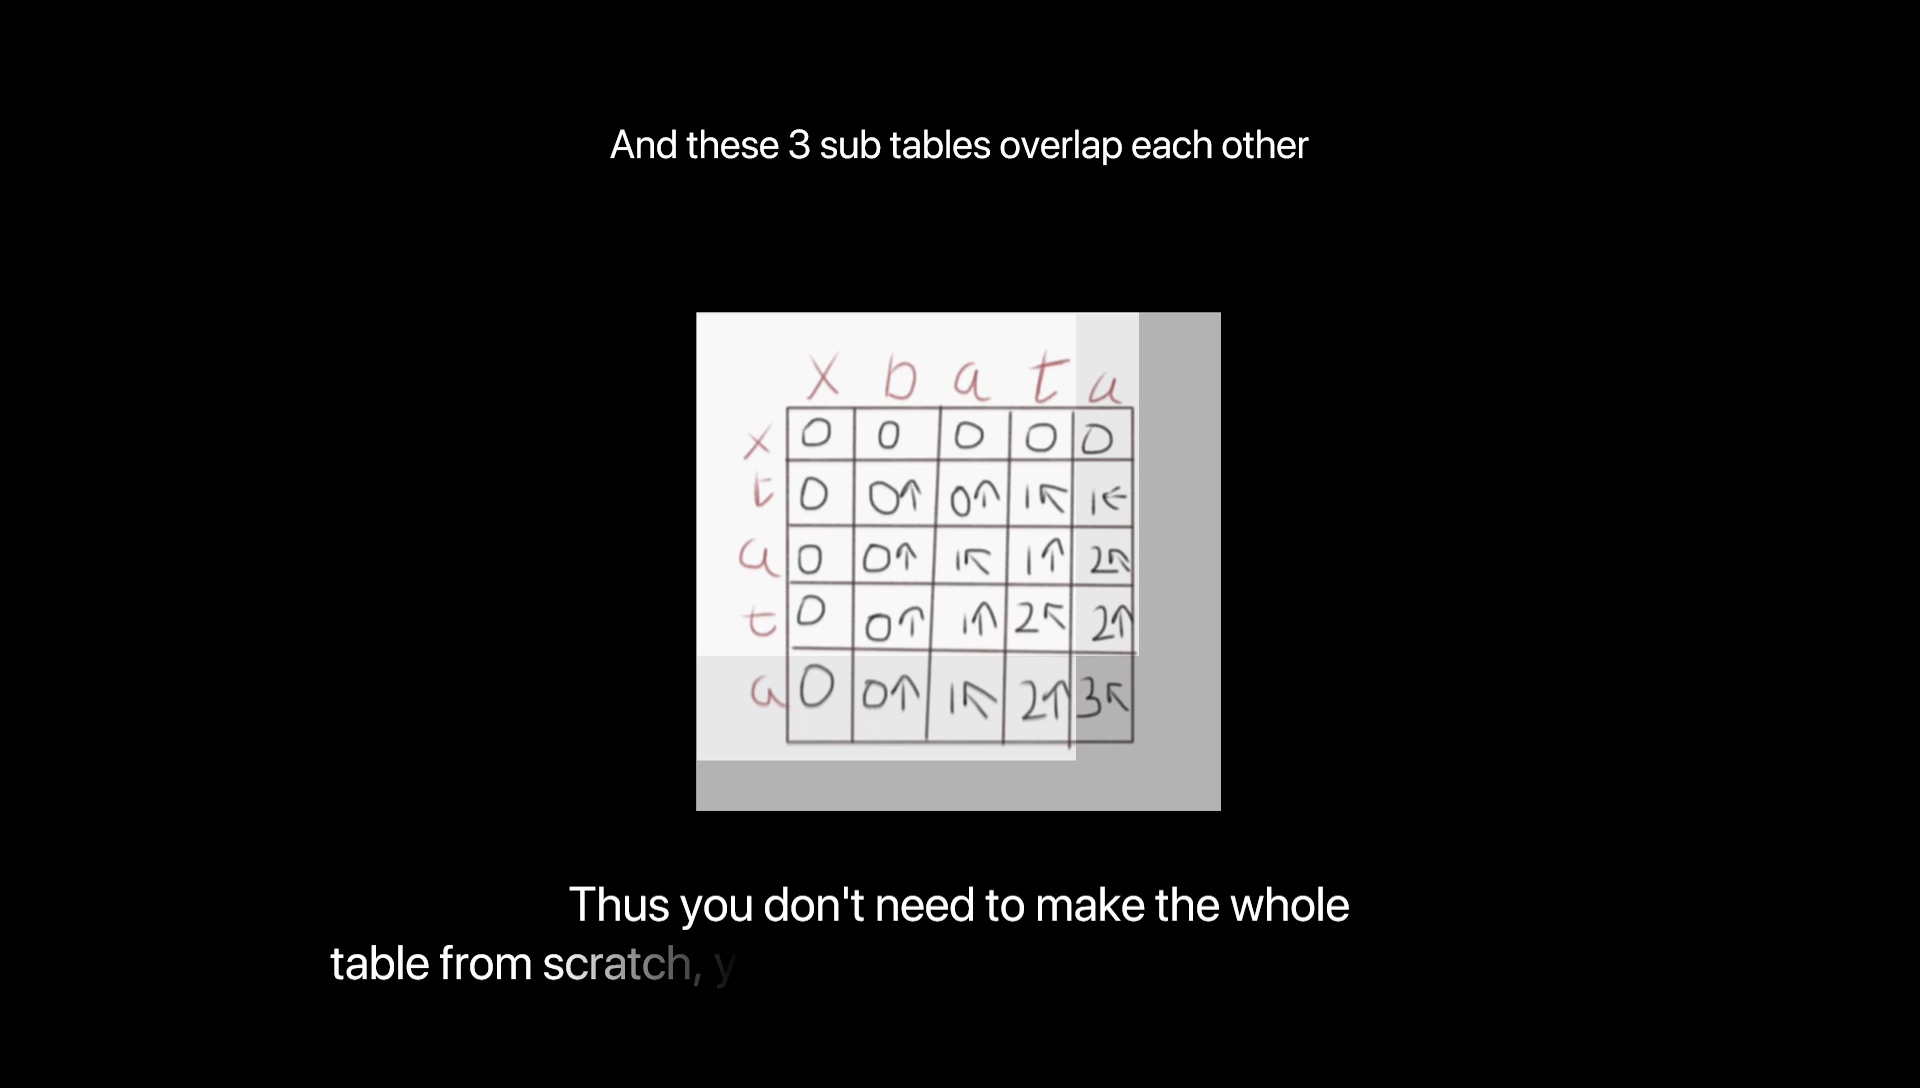 And these 3 sub tables overlap each other
x b a t a
x 0 0 0 0 0
t 0 0↑ 0↑ 1↖ 1←
a 0 0↑ 1↖ 1↑ 2↖
t 0 0↑ 1↑ 2↖ 2↑
a 0 0↑ 1↖ 2↑ 3↖
Thus you don't need to make the whole
table from scratch, y